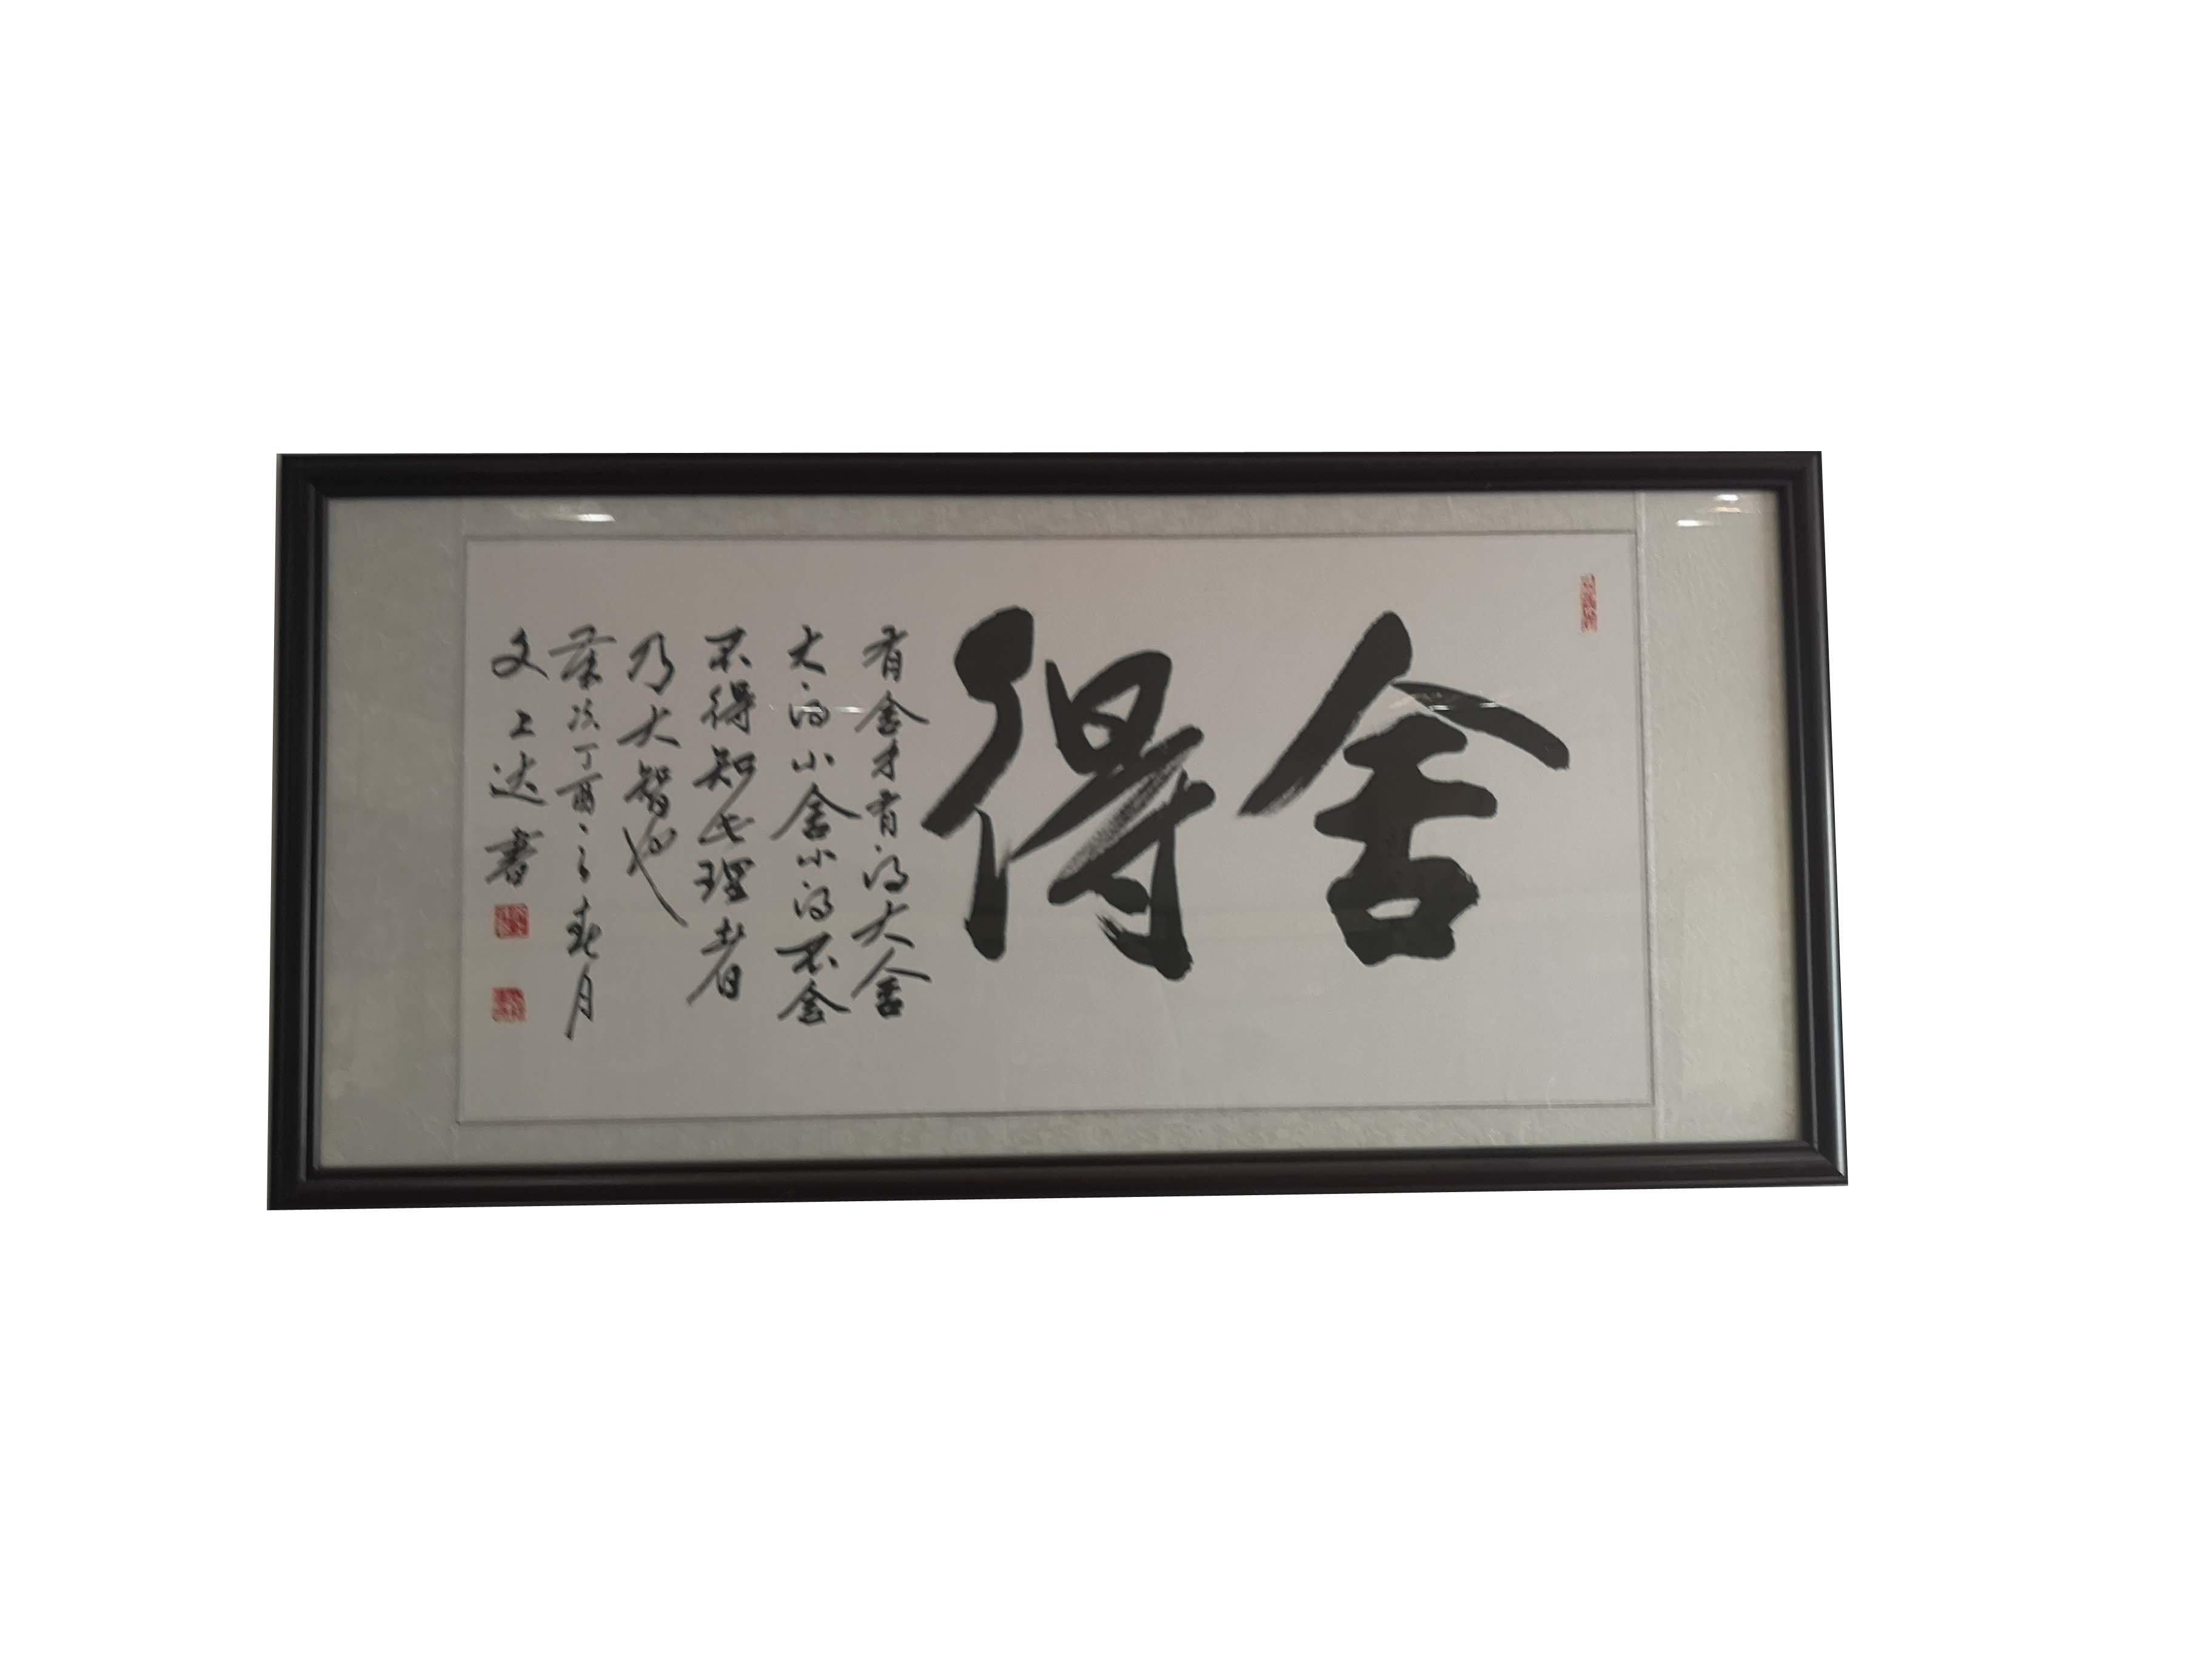 舍得
有舍才有得大舍
大得小舍小得不舍
不得知此理者
乃大智也
岁次丁酉之春月
文上达书